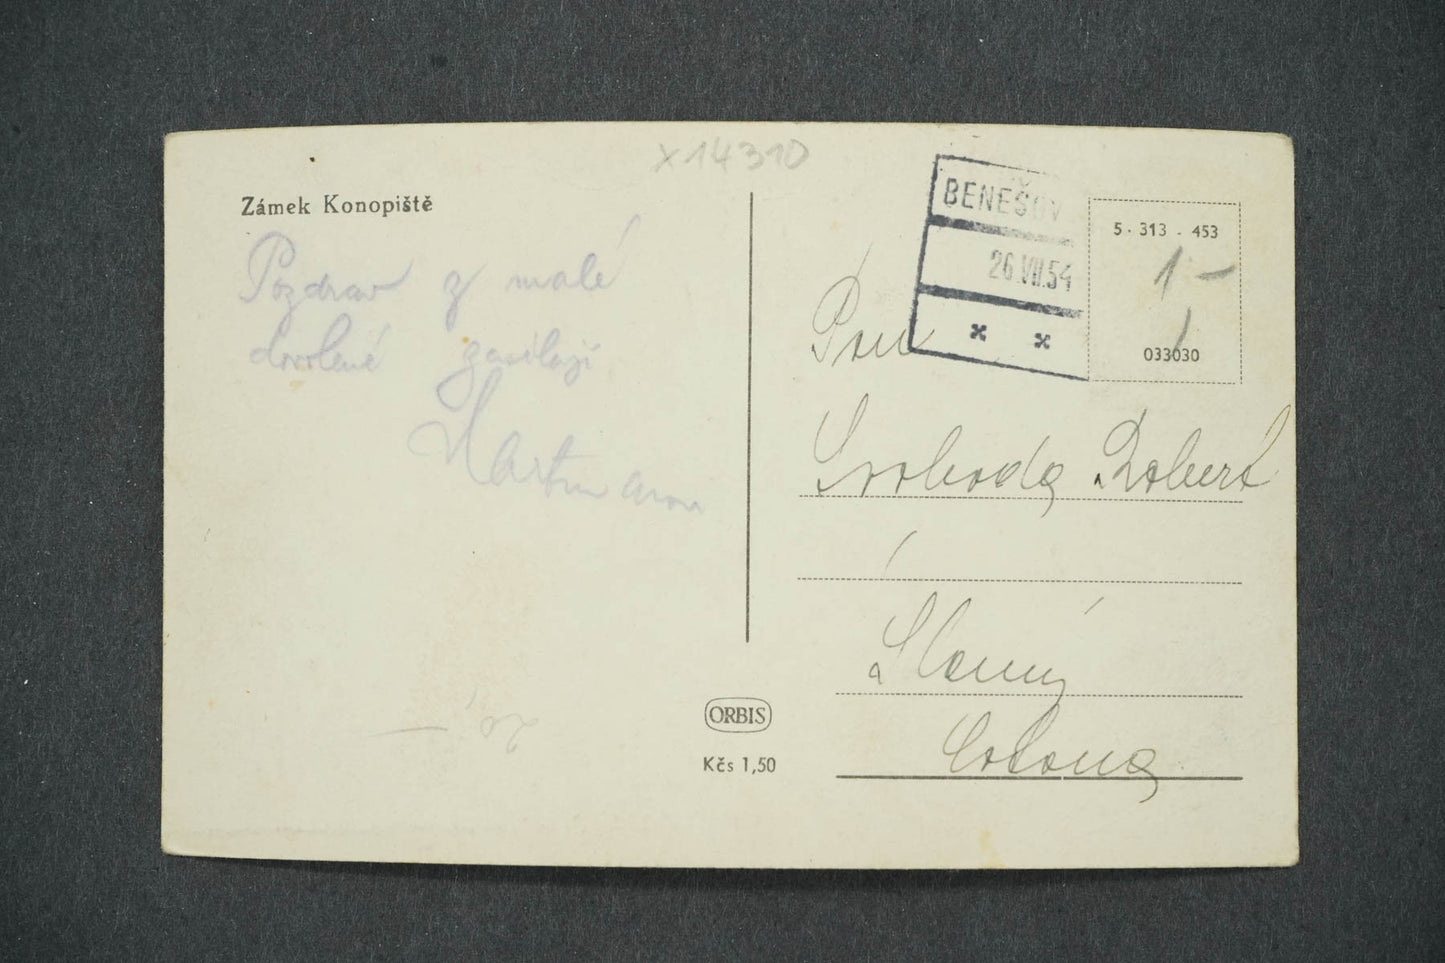 x14310
Zámek Konopiště
Pozdrav z malé
dovolené zasílají
Hartmanovi
BENEŠOV
26.VII.54
5 - 313 - 453
1-
033030
Pan
Svoboda Robert
Slaný
ORBIS
Kčs 1,50